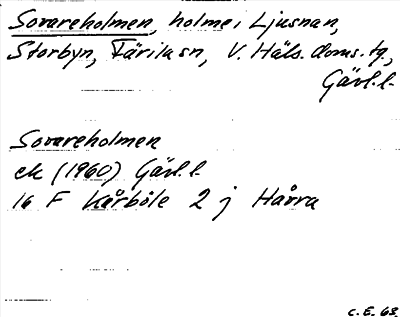 Sovareholmen, holme i Ljusnan,
Storbyn, Färila sn, V. Häls. doms. tg,
Gävl. l.
Sovareholmen
ek (1960) Gävl. l.
16 F Kårböle 2 j Hårra
C. E. 63.